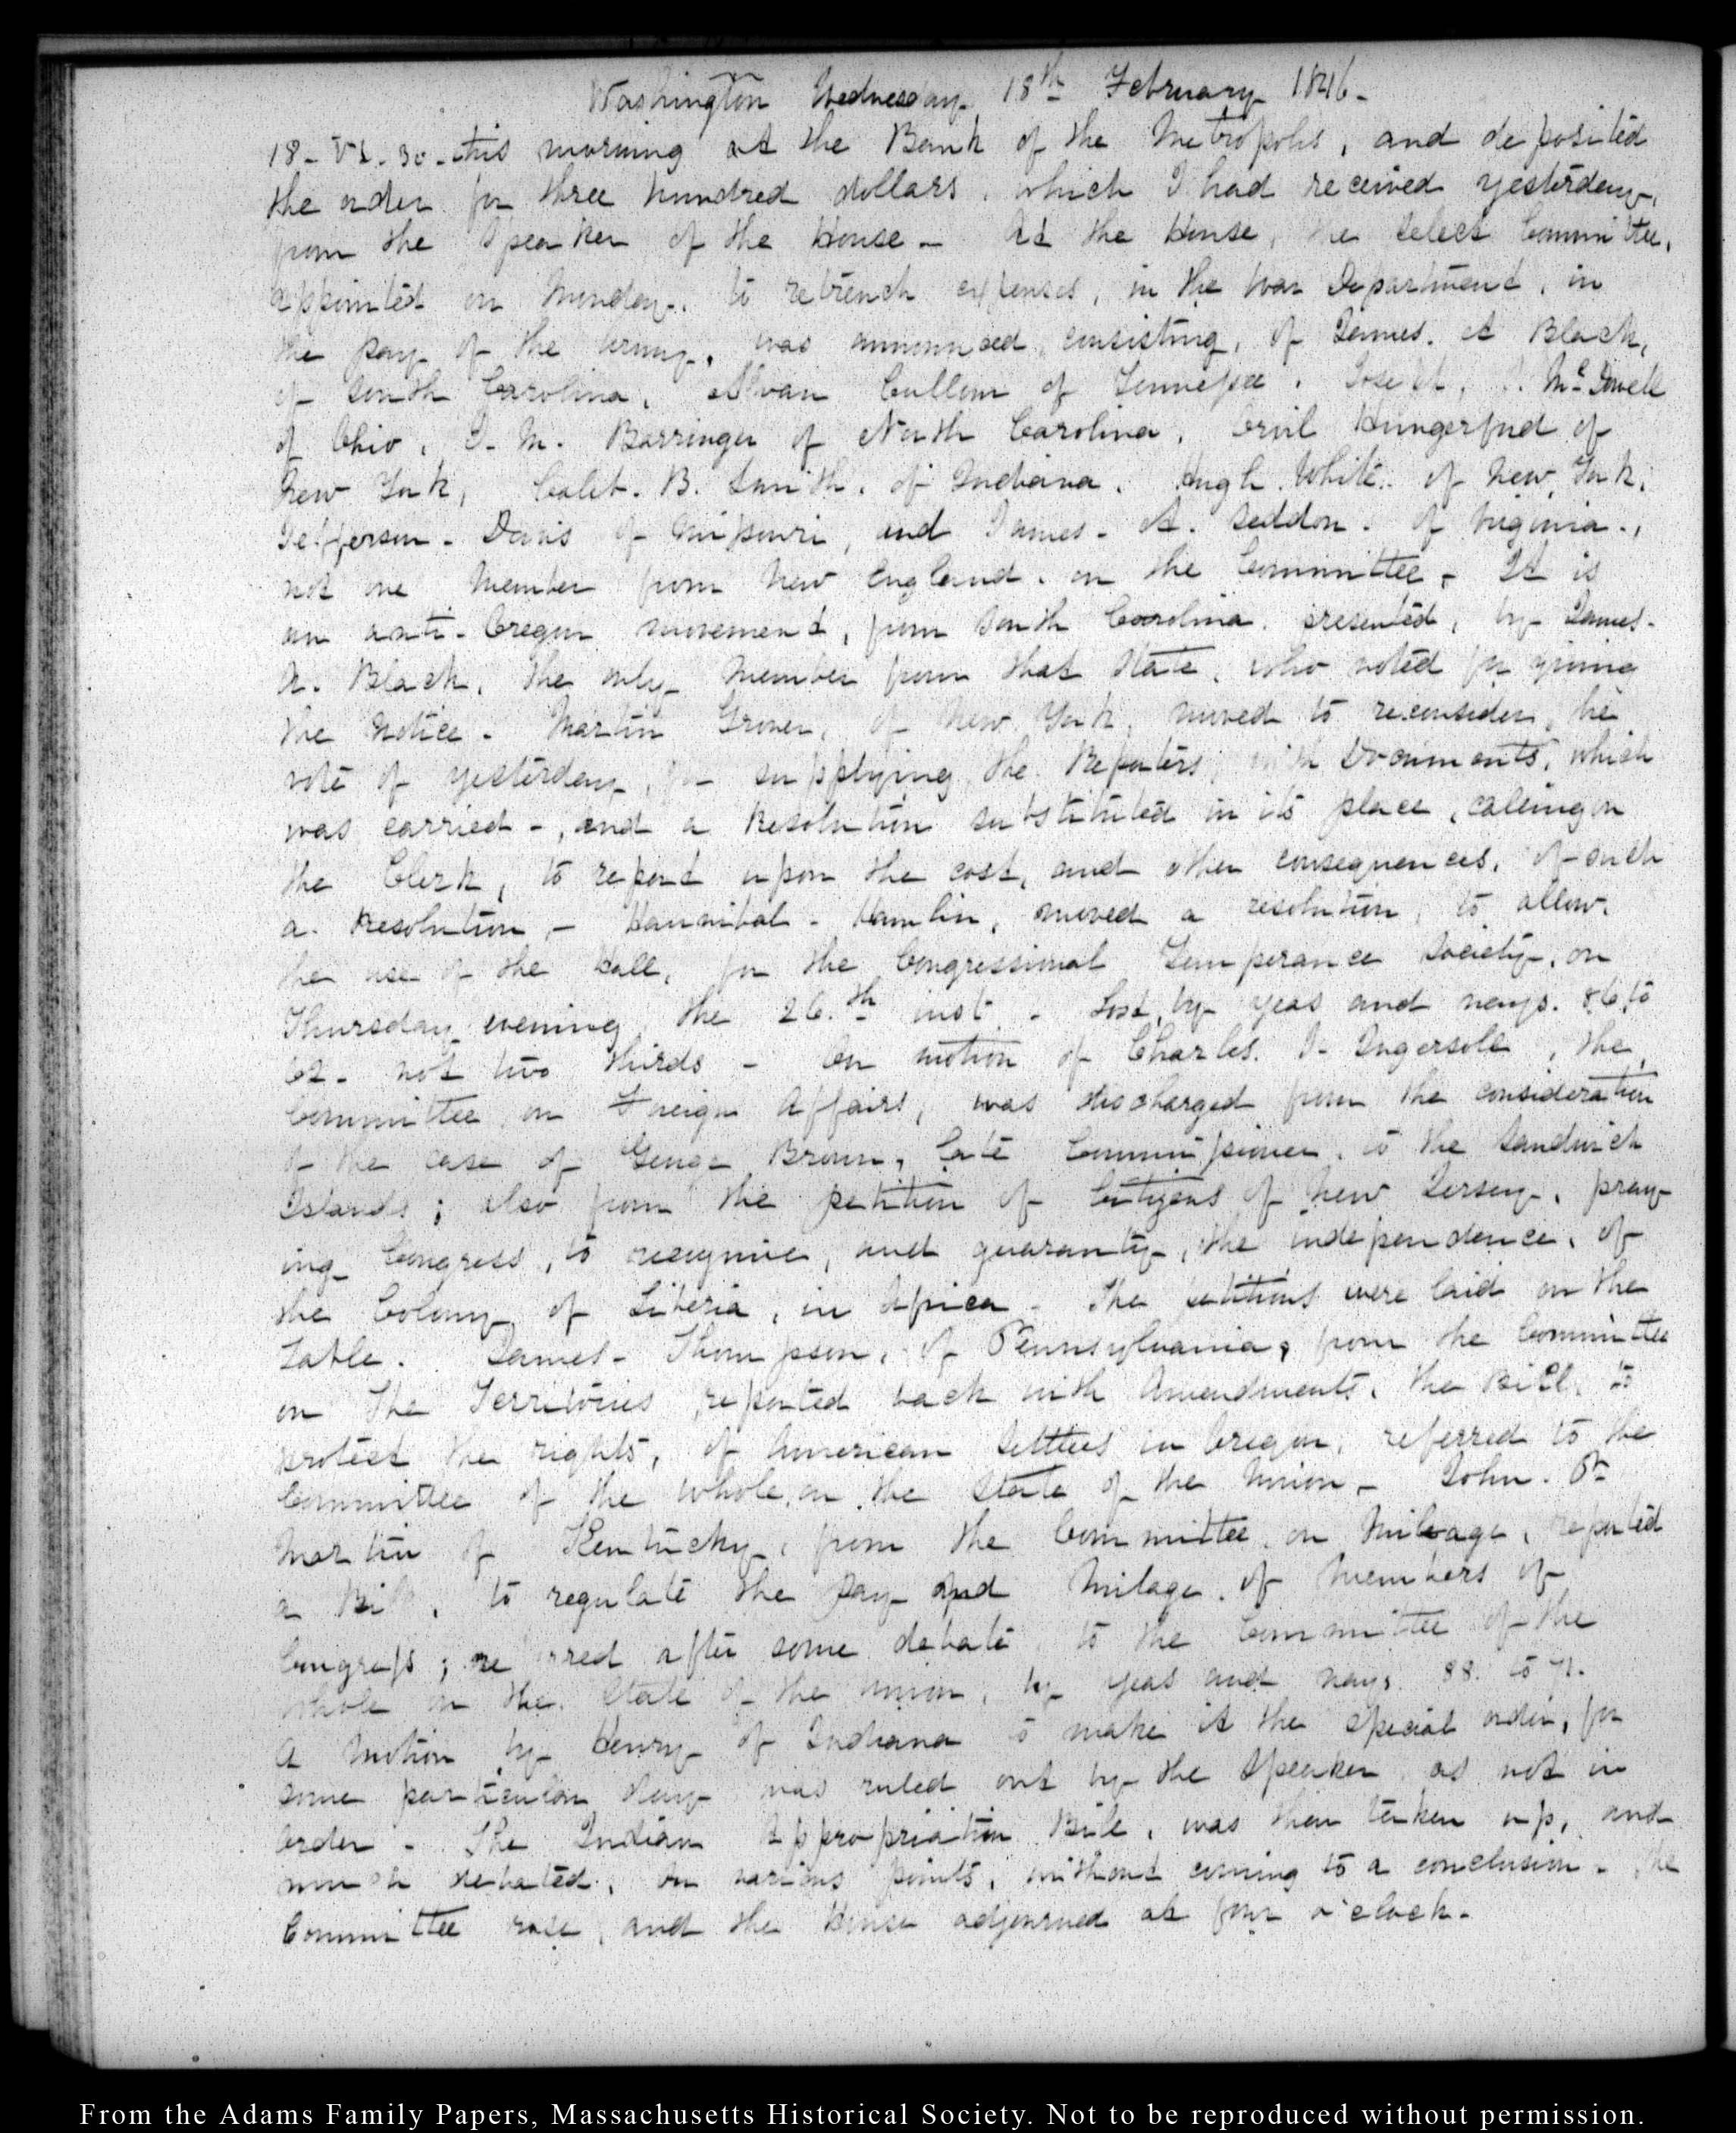 Washington Wednesday 18th February 1846-
18- VI. 30- this morning at the Bank of the Metropolis, and deposited
the order for three hundred dollars, which I had received yesterday,
from the Speaker of the House- At the House, the Select Committee,
appointed on Monday, to retrench expenses, in the War Department, in
the pay of the Army, was announced, consisting, of James. A Black,
of South Carolina, Alvan Cullom of Tennessee, Joseph, J. McDowell
of Ohio, D. M. Barringer of North Carolina, Orvil Hungerford of
New York, Caleb. B. Smith, of Indiana, Hugh White, of New York,
Jefferson- Davis of Missouri, and James- A. Seddon- of Virginia-,
not one Member from New England, on the Committee- It is
an anti-Oregon movement, from South Carolina, presented, by James-
A. Black, the only Member from that State, who voted for giving
the Notice- Martin Grover, of New York, moved to reconsider, the
vote of yesterday, for supplying, the Reporters, with Documents, which
was carried-, and a Resolution substituted in its place, calling on
the Clerk, to report upon the cost, and other consequences, of such
a. Resolution,- Hannibal- Hamlin, moved a resolution, to allow.
the use of the Hall, for the Congressional Temperance Society, on
Thursday evening, the 26.th inst.- Lost, by yeas and nays. 86 to
62- not two thirds- On motion of Charles. J- Ingersoll, the,
Committee on Foreign Affairs, was discharged from the consideration
of the case of George Brown, late Commissioner, to the Sandwich
Islands; also from the petition of Citizens of New Jersey, pray-
ing Congress, to recognise, and guaranty, the independence, of
the Colony of Liberia, in Africa- The petitions were laid on the
Table. James- Thompson, of Pennsylvania, from the Committee
on The Territories, reported back with Amendments, the Bill, to
protect the rights, of American Settlers in Oregon, referred to the
Committee of the whole, on the State of the Union- John. P-
Martin of Kentucky, from the Committee on Mileage, reported
a Bill, to regulate the Pay and Milage of Members of
Congress; referred after some debate, to the Committee of the
whole on the State of the union, by yeas and nays 88. to 71.
A Motion by Henry of Indiana to make it the special order, for
some particular day was ruled out by the Speaker, as not in
order- The Indian Appropriation Bill, was then taken up, and
much debated, on various points, without coming to a conclusion- the
Committee rose, and the House adjourned at four o'clock-
From the Adams Family Papers, Massachusetts Historical Society. Not to be reproduced without permission.